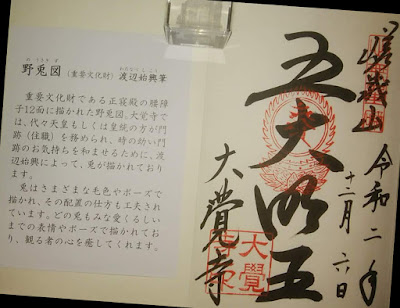 野兎図（重要文化財）渡辺始興筆
重要文化財である正寝殿の腰障
子12面に描かれた野兎図。大覚寺で
は、代々天皇もしくは皇統の方が門
跡（住職）を務められ、時の幼い門
跡のお気持ちを和ませるために、渡
辺始興によって、兎が描かれており
ます。
兎はさまざまな毛色やポーズで
描かれ、その配置の仕方も工夫され
ています。どの兎もみな愛くるしい
までの表情やポーズで描かれてお
り、観る者の心を癒してくれます。
嵯峨山
令和二年
十二月六日
五大明王
大覺寺
大覺